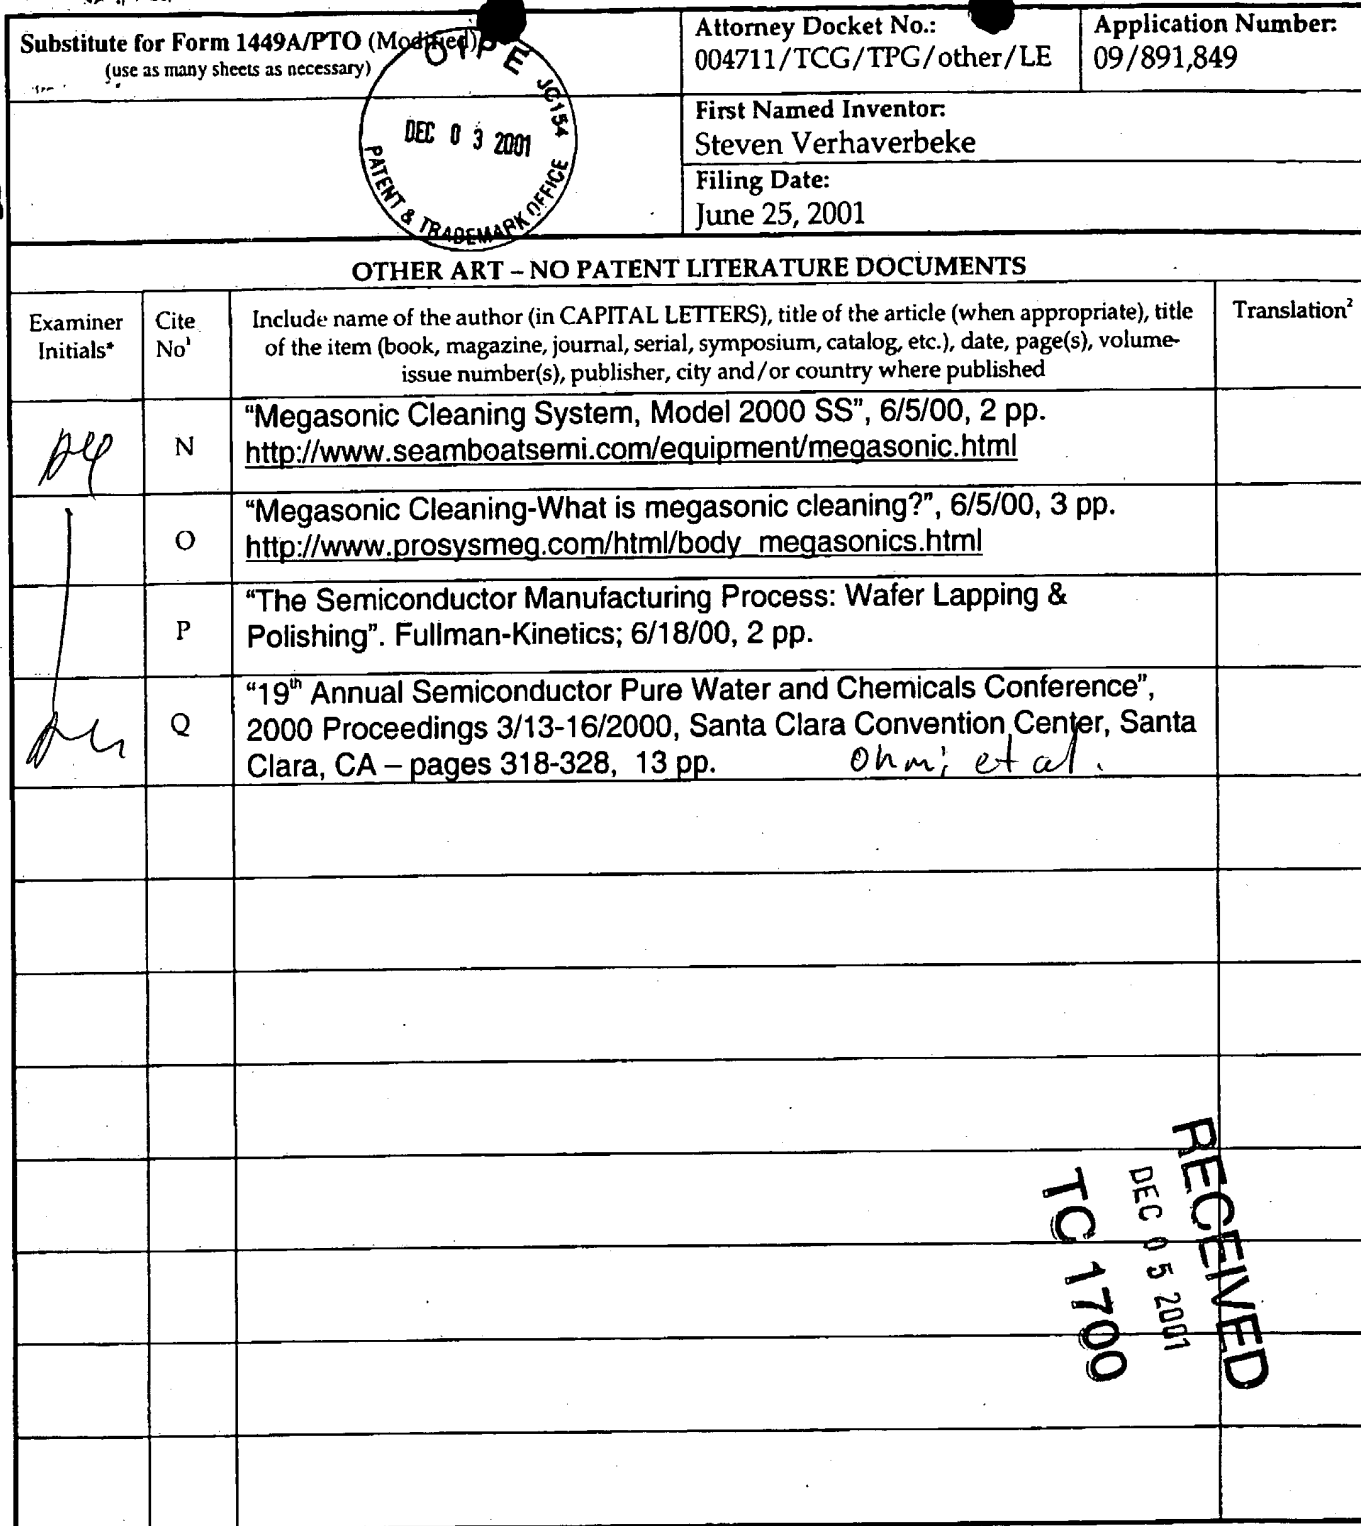 Substitute for Form 1449A/PTO (Modified)
(use as many sheets as necessary)
OIPE JC154
DEC 0 3 2001
PATENT & TRADEMARK OFFICE
Attorney Docket No.:
004711/TCG/TPG/other/LE
Application Number:
09/891,849
First Named Inventor:
Steven Verhaverbeke
Filing Date:
June 25, 2001
OTHER ART – NO PATENT LITERATURE DOCUMENTS
Examiner
Initials*
Cite
No¹
Include name of the author (in CAPITAL LETTERS), title of the article (when appropriate), title
of the item (book, magazine, journal, serial, symposium, catalog, etc.), date, page(s), volume-
issue number(s), publisher, city and/or country where published
Translation²
N
"Megasonic Cleaning System, Model 2000 SS", 6/5/00, 2 pp.
http://www.seamboatsemi.com/equipment/megasonic.html
O
"Megasonic Cleaning-What is megasonic cleaning?", 6/5/00, 3 pp.
http://www.prosysmeg.com/html/body_megasonics.html
P
"The Semiconductor Manufacturing Process: Wafer Lapping &
Polishing". Fullman-Kinetics; 6/18/00, 2 pp.
Q
"19th Annual Semiconductor Pure Water and Chemicals Conference",
2000 Proceedings 3/13-16/2000, Santa Clara Convention Center, Santa
Clara, CA – pages 318-328, 13 pp. Ohmi et al.
RECEIVED
DEC 0 5 2001
TC 1700